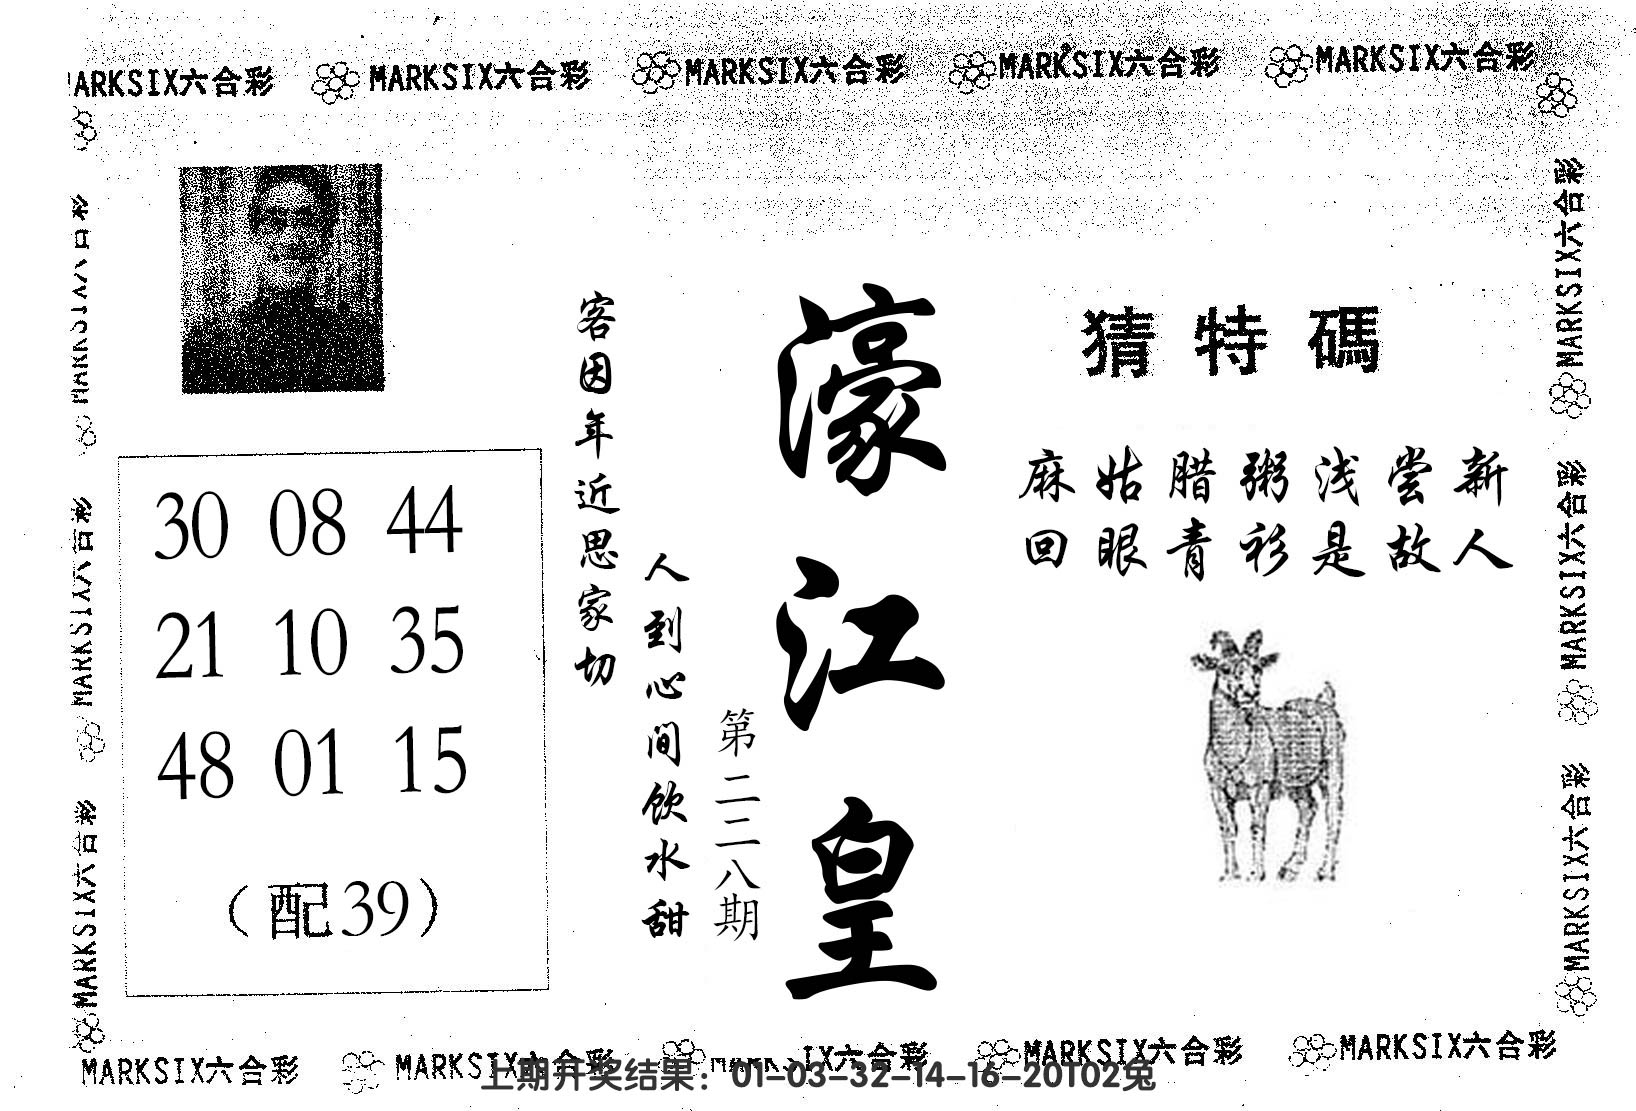 MARKSIX六合彩 MARKSIX六合彩 MARKSIX六合彩 MARKSIX六合彩
猜特碼
麻姑腊粥浅尝新
回眼青衫是故人
濠江皇
第二二八期
人到心间饮水甜
客因年近思家切
30 08 44
21 10 35
48 01 15
（配39）
MARKSIX六合彩
MARKSIX六合彩
MARKSIX六合彩
MARKSIX六合彩
MARKSIX六合彩
MARKSIX六合彩 MARKSIX六合彩 MARKSIX六合彩 MARKSIX六合彩
上期开奖结果：01-03-32-14-16-20T02兔